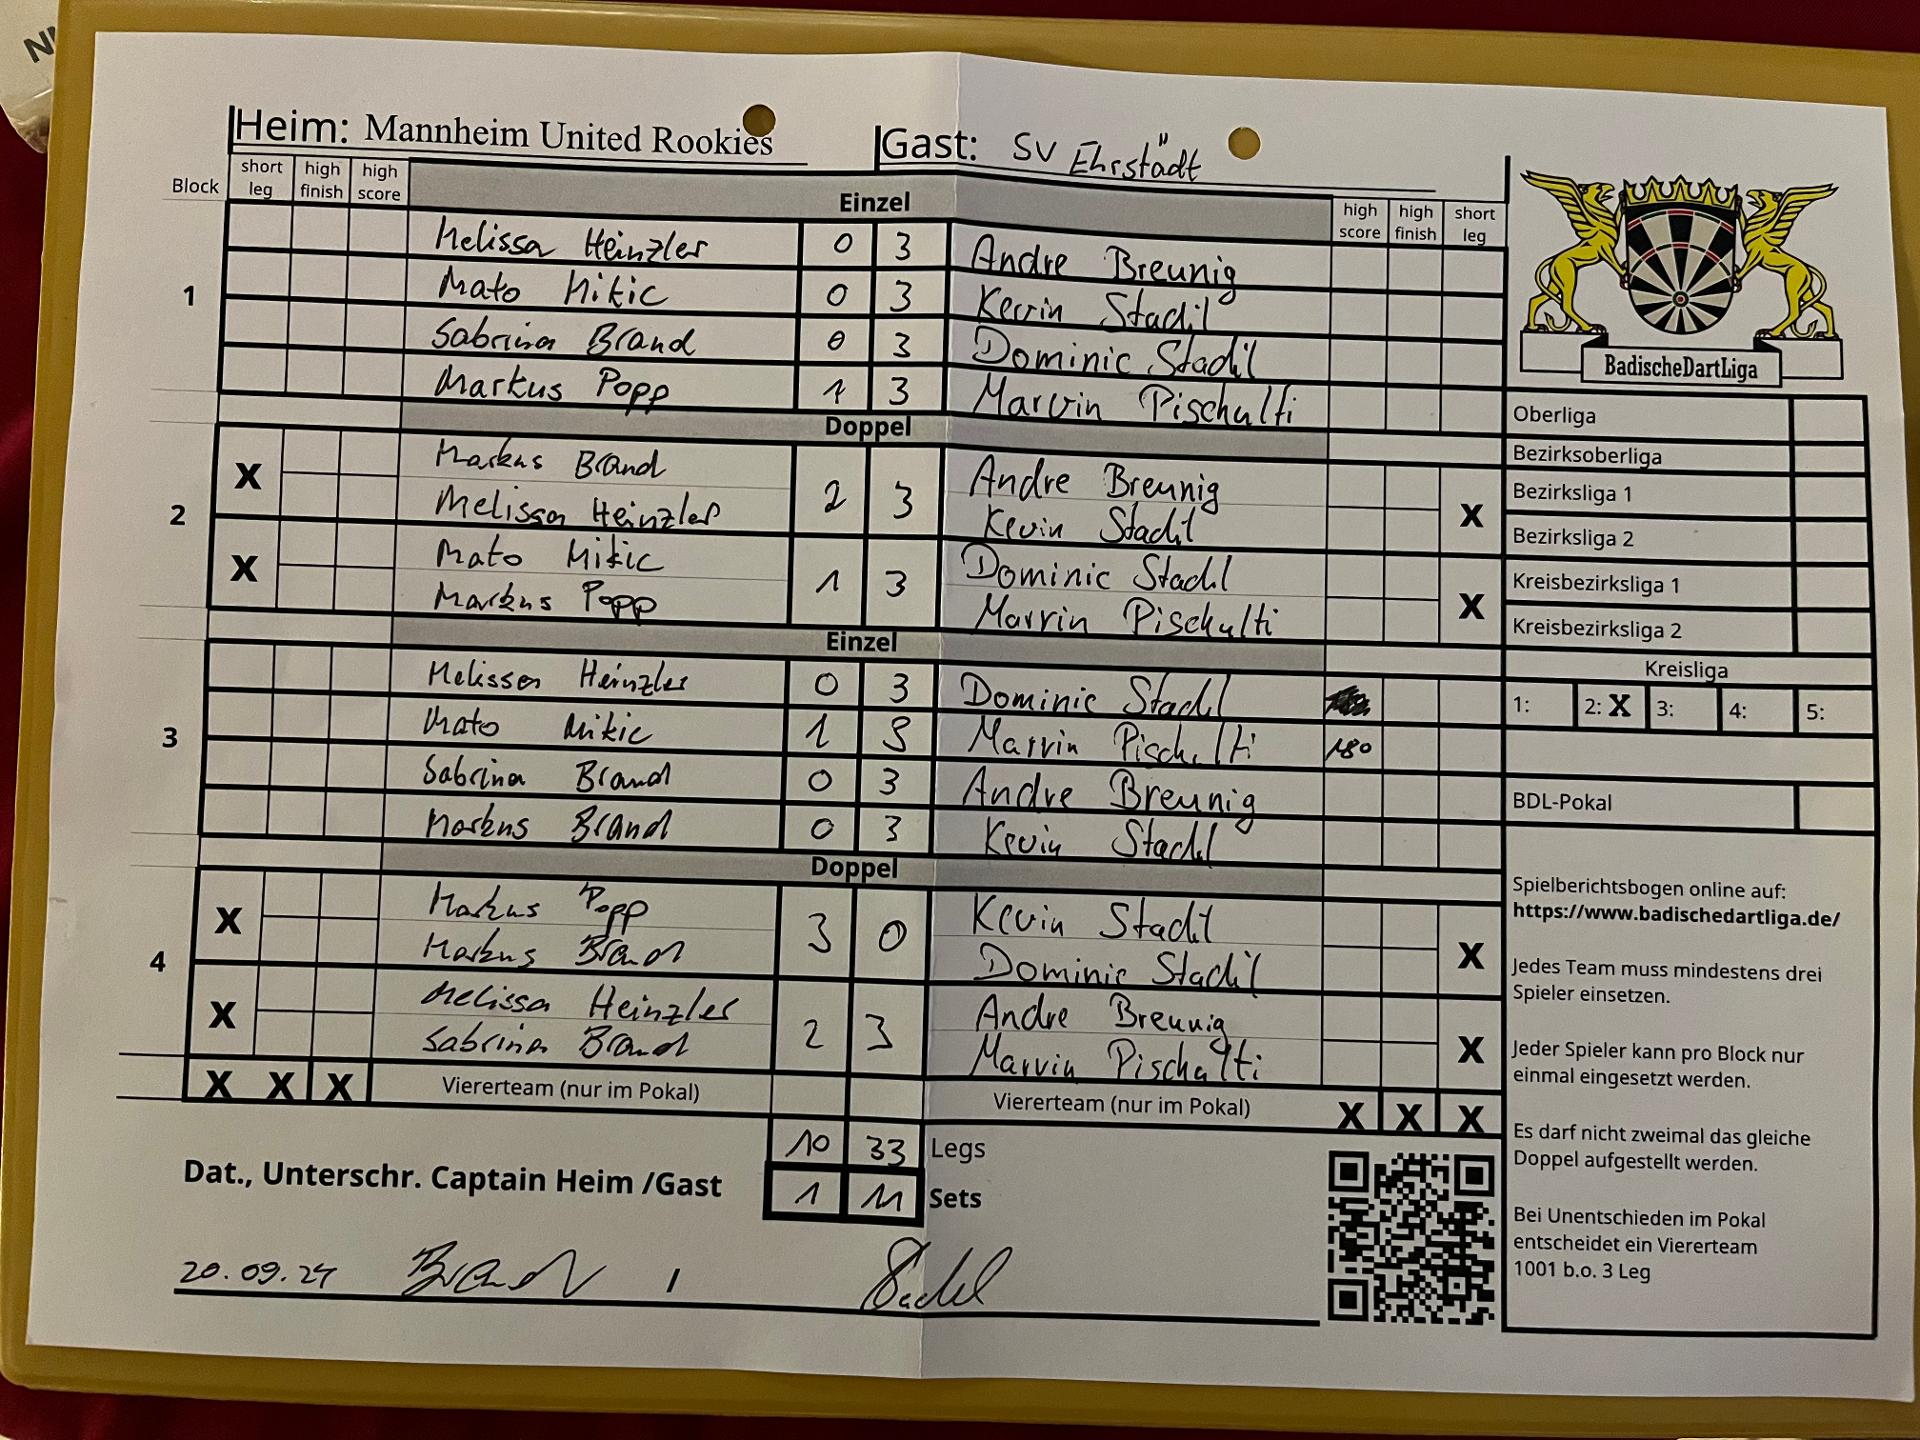 Heim: Mannheim United Rookies Gast: SV Ehrstädt
Block short leg high finish high score Einzel high score high finish short leg
1
Melissa Heinzler 0 3 Andre Breunig
Mato Mikic 0 3 Kevin Stadtl
Sabrina Brand 0 3 Dominic Stadtl
Markus Popp 1 3 Marvin Pischulti
Doppel
2
X Markus Brand 2 3 Andre Breunig X
Melissa Heinzler Kevin Stadtl
X Mato Mikic 1 3 Dominic Stadtl X
Markus Popp Marvin Pischulti
Einzel
3
Melissa Heinzler 0 3 Dominic Stadtl
Mato Mikic 1 3 Marvin Pischulti 180
Sabrina Brand 0 3 Andre Breunig
Markus Brand 0 3 Kevin Stadtl
Doppel
4
X Markus Popp 3 0 Kevin Stadtl X
Markus Brand Dominic Stadtl
X Melissa Heinzler 2 3 Andre Breunig X
Sabrina Brand Marvin Pischulti
X X X Viererteam (nur im Pokal) Viererteam (nur im Pokal) X X X
10 33 Legs
Dat., Unterschr. Captain Heim /Gast 1 11 Sets
20.09.24 Brand /
BadischeDartLiga
Oberliga
Bezirksoberliga
Bezirksliga 1
Bezirksliga 2
Kreisbezirksliga 1
Kreisbezirksliga 2
Kreisliga
1: 2: X 3: 4: 5:
BDL-Pokal
Spielberichtsbogen online auf:
https://www.badischedartliga.de/
Jedes Team muss mindestens drei
Spieler einsetzen.
Jeder Spieler kann pro Block nur
einmal eingesetzt werden.
Es darf nicht zweimal das gleiche
Doppel aufgestellt werden.
Bei Unentschieden im Pokal
entscheidet ein Viererteam
1001 b.o. 3 Leg